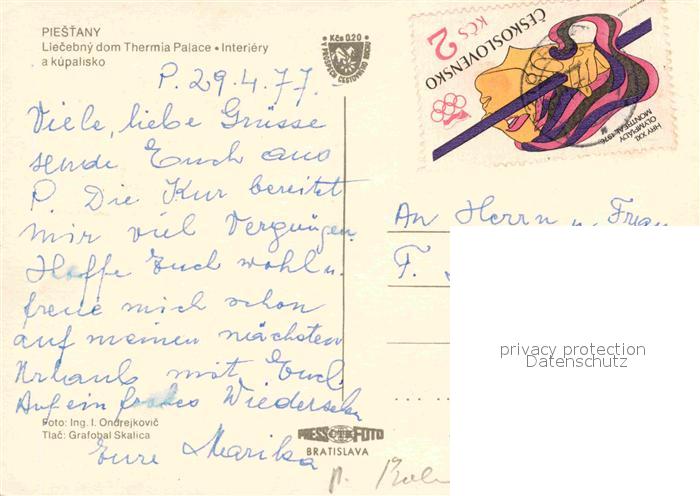 PIEŠŤANY
Liečebný dom Thermia Palace • Interiéry
a kúpalisko
Kčs 0.20
V PROSPECH CESTOVNÉHO RUCHU
2 Kčs
ČESKOSLOVENSKO
HRY XXI.
OLYMPIÁDY
MONTREAL 1976
P. 29.4.77.
Viele, liebe Grüsse
sende Euch aus
P. Die Kur bereitet
mir viel Vergnügen.
Hoffe Euch wohl u.
freue mich schon
auf meinen nächsten
Urlaub mit Euch.
Auf ein frohes Wiedersehn
Eure Marika
An Herrn u. Frau
F.
privacy protection
Datenschutz
Foto: Ing. I. Ondrejkovič
Tlač: Grafobal Skalica
PRESSFOTO
BRATISLAVA